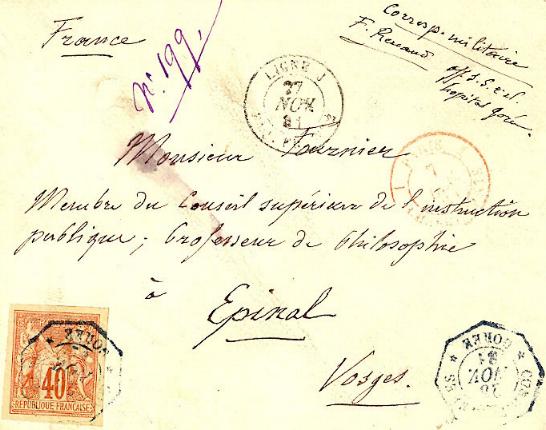 France
N°. 199.
Corresp. militaire
F. Renaud
LIGNE J
27
NOV.
81
Monsieur Fournier
Membre du Conseil supérieur de l'instruction
publique; Professeur de Philosophie
à
Epinal
Vosges.
40
REPUBLIQUE FRANÇAISE
GOREE
GOREE
81
NOV.